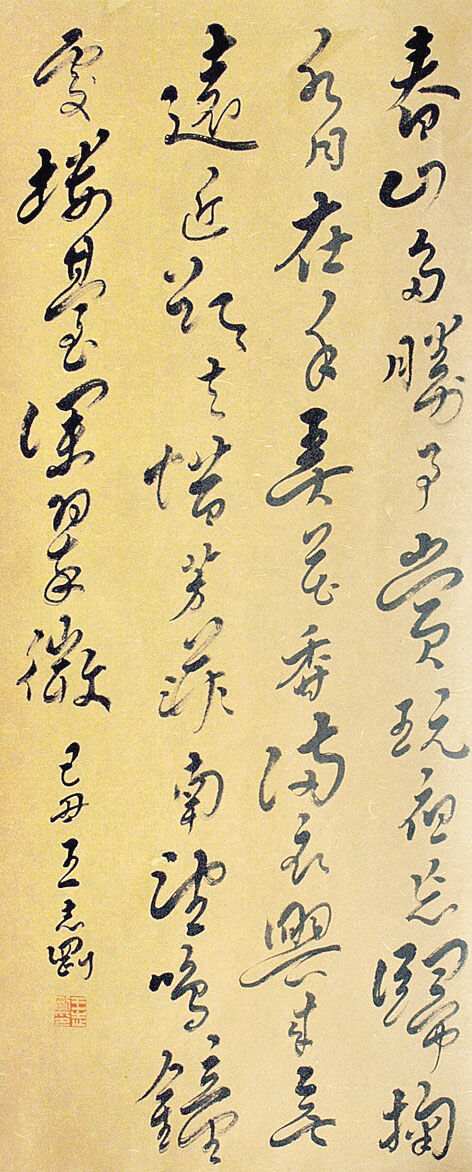 春山多勝事賞玩夜忘歸掬
水月在手弄花香滿衣興來無
遠近欲去惜芳菲南望鳴鐘
處樓臺深翠微 己丑 王志剛